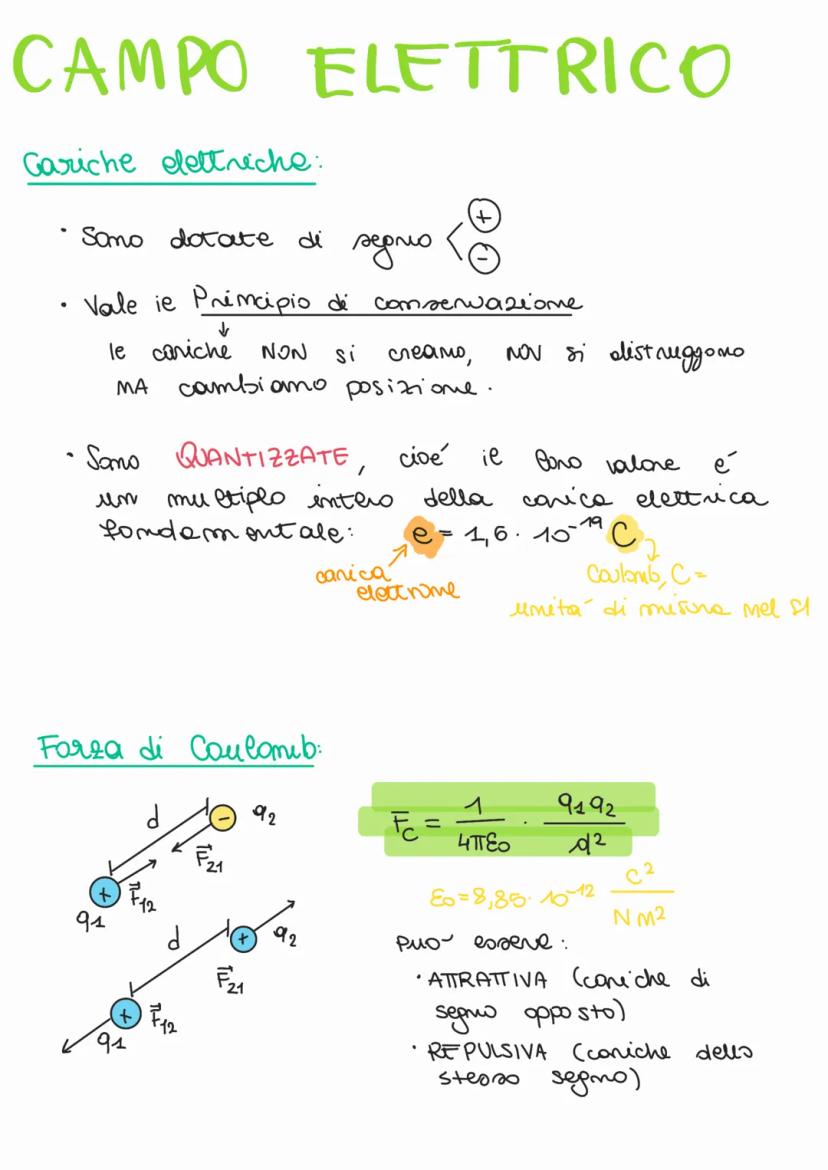 CAMPO ELETTRICO
Cariche elettriche:
• Sono dotate di segno < + -
• Vale il Principio di conservazione
↓
le cariche NON si creano, NON si distruggono
MA cambiano posizione.
• Sono QUANTIZZATE, cioé il loro valore é
un multiplo intero della carica elettrica
fondamentale: e = 1,6 · 10⁻¹⁹ C
carica
elettrone
Coulomb, C =
unitá di misura nel SI
Forza di Coulomb:
d - q2
F⃗21
+ F⃗12
q1
d + q2
F⃗21
+ F⃗12
q1
F̄c = 1/4πε0 · q1q2/d²
ε0 = 8,85 · 10⁻¹² C²/Nm²
può essere:
• ATTRATTIVA (cariche di
segno opposto)
• REPULSIVA (cariche dello
stesso segno)